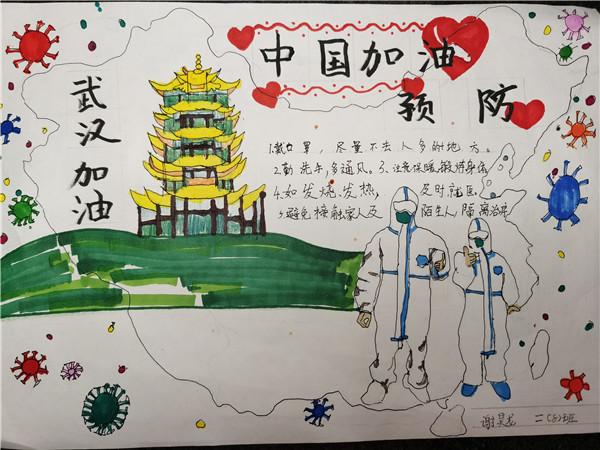 中国加油
预防
武汉加油
1.戴口罩，尽量不去人多的地方。
2.勤洗手，多通风。3.注意保暖，锻炼身体
4.如发烧，发热，及时就医
5.避免接触家人及陌生人，隔离治疗